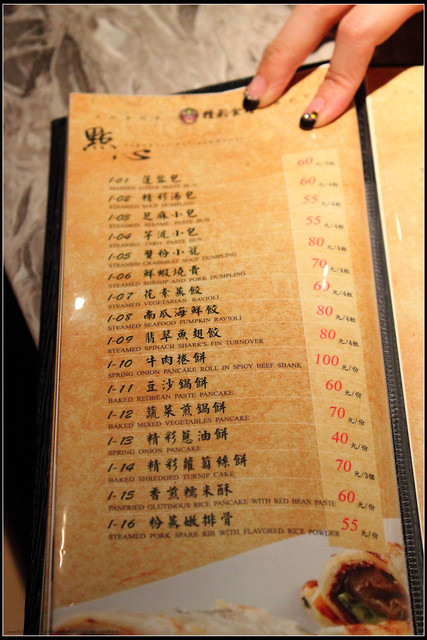 點心
1-01 蓮蓉包 60
STEAMED LOTUS PASTE BUN
1-02 精彩湯包 60
STEAMED SOUP DUMPLING
1-03 芝麻小包 55
STEAMED SESAME PASTE BUN
1-04 芋泥小包 55
STEAMED TARO PASTE BUN
1-05 蟹粉小籠 80
STEAMED CRABMEAT SOUP DUMPLING
1-06 鮮蝦燒賣 70
STEAMED SHRIMP AND PORK DUMPLING
1-07 花素蒸餃 60 元/4粒
STEAMED VEGETARIAN RAVIOLI
1-08 南瓜海鮮餃 80 元/4粒
STEAMED SEAFOOD PUMPKIN RAVIOLI
1-09 翡翠魚翅餃 80 元/4粒
STEAMED SPINACH SHARK'S FIN TURNOVER
1-10 牛肉捲餅 100 元/份
SPRING ONION PANCAKE ROLL IN SPICY BEEF SHANK
1-11 豆沙鍋餅 60 元/份
BAKED REDBEAN PASTE PANCAKE
1-12 蔬菜煎鍋餅 70 元/份
BAKED MIXED VEGETABLES PANCAKE
1-13 精彩蔥油餅 40 元/份
SPRING ONION PANCAKE
1-14 精彩蘿蔔絲餅 70 元/3個
BAKED SHREDDED TURNIP CAKE
1-15 香煎糯米酥 60 元/份
PANFRIED GLUTINOUS RICE PANCAKE WITH RED BEAN PASTE
1-16 粉蒸嫩排骨 55 元/份
STEAMED PORK SPARE RIB WITH FLAVORED RICE POWDER